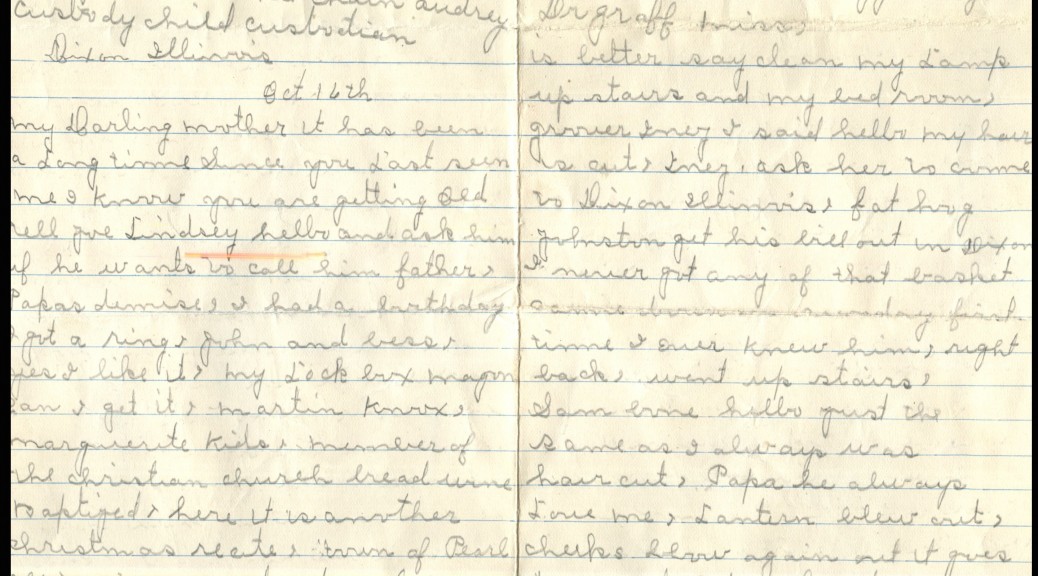 chain audrey
custody child custodian
Dixon Illinois
Oct 16th
my Darling mother it has been
a Long time Since you Last seen
me I know you are getting Old
tell joe Lindsey hello and ask him
if he wants to call him father,
Papas demise, I had a birthday
I got a ring, John and bess,
yes I like it, my Lock box
can I get it, martin Knox,
marguerite Kids, member of
the christian church bread wine
baptized, here it is another
christmas recite, town of Pearl
Dr graff miss,
is better say clean my Lamp
up stairs and my bed room,
grover Iney I said hello my hair
is cut, Iney, ask her to come
to Dixon Illinois, fat hog
Johnston get his bill out in Dixon
I never got any of that basket
came down on first
time I ever knew him, right
back, went up stairs,
Sam hello just the
same as I always was
hair cut, Papa he always
Love me, Lantern blew out,
cheeks blow again out it goes